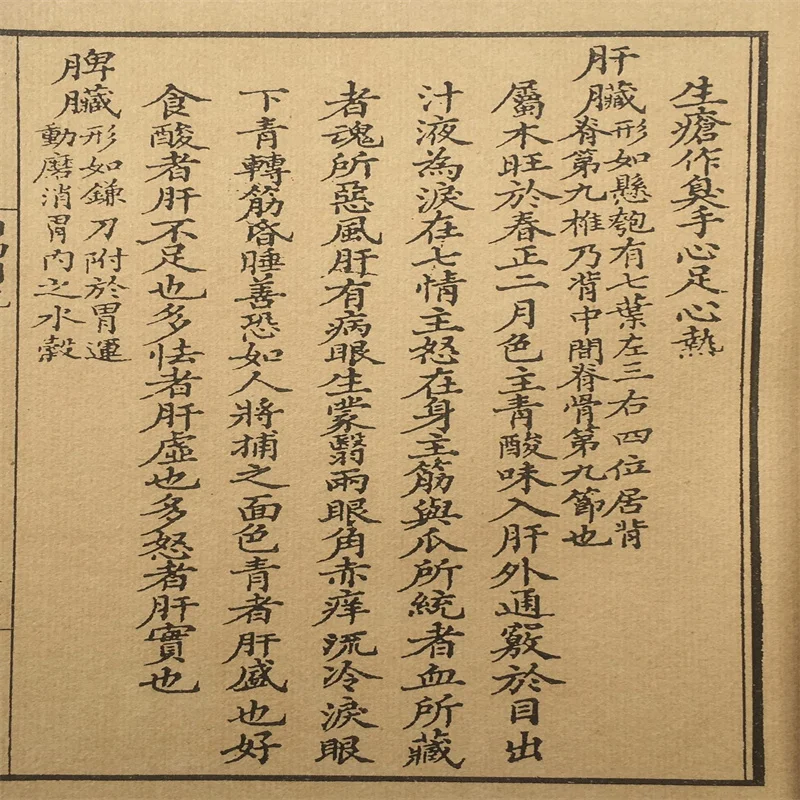 生瘡作臭手心足心熱
肝臟形如懸匏有七葉左三右四位居背
脊第九椎乃背中間脊骨第九節也
屬木旺於春正二月色主青酸味入肝外通竅於目出
汁液為淚在七情主怒在身主筋與爪所統者血所藏
者魂所惡風肝有病眼生蒙翳兩眼角赤痒流冷淚眼
下青轉筋昏睡善恐如人將捕之面色青者肝盛也好
食酸者肝不足也多怯者肝虛也多怒者肝實也
脾臟形如鎌刀附於胃運
動磨消胃內之水穀